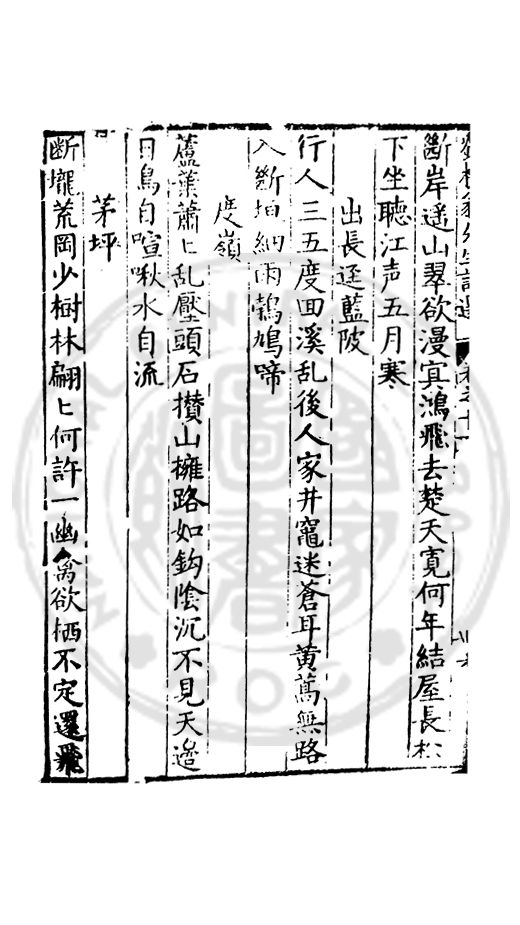 斷岸遥山翠欲漫㝠鴻飛去楚天寛何年結屋長松
下坐聽江声五月寒
出長逕藍陂
行人三五度回溪乱後人家井竈迷蒼耳黄蒿無路
入斷垣細雨鵓鳩啼
度嶺
蘆葉蕭〻乱壓頭石攅山擁路如鈎隂沉不見天邉
日鳥自喧啾水自流
茅坪
断壠荒岡少樹林翩〻何許一幽禽欲栖不定還飛